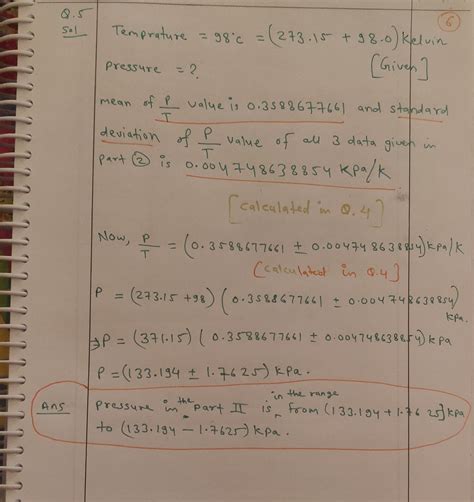 6
Q.5
Sol
Temprature = 98°c = (273.15 + 98.0) Kelvin
Pressure = ?
[Given]
mean of P/T value is 0.3588677661 and standard
deviation of P/T value of all 3 data given in
part ② is 0.004748638854 kPa/K
[calculated in Q.4]
Now, P/T = (0.3588677661 ± 0.004748638854) kPa/K
(calculated in Q.4]
P = (273.15 + 98) (0.3588677661 ± 0.004748638854) kPa.
⇒ P = (371.15) (0.3588677661 ± 0.004748638854) kPa
P = (133.194 ± 1.7625) kPa.
Ans
Pressure in the Part II is in the range from (133.194 + 1.7625] kPa
to (133.194 – 1.7625) kPa.